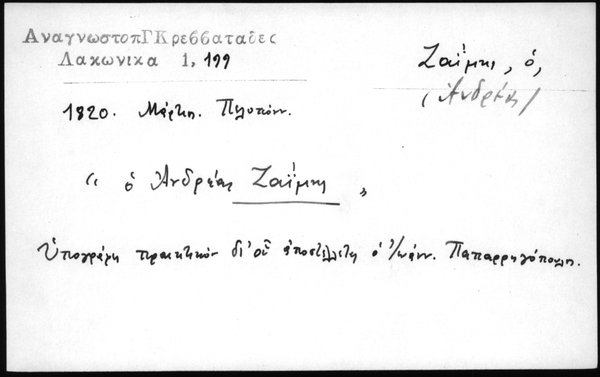 ΑναγνωστοπΓΚρεββαταδες
Λακωνικα 1, 199
Ζαΐμης, ὁ,
(Ἀνδρέας)
1820. Μάρτης. Πελοπόνν.
" ὁ Ἀνδρέας Ζαΐμης "
Ὑπογράφει πρακτικὸν δι' οὗ ἀποστέλλεται ὁ Ἰωάνν. Παπαρρηγόπουλος.